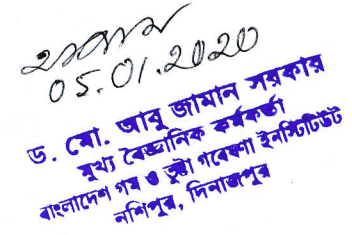 05.01.2020
ড. মো. আবু জামান সরকার
মুখ্য বৈজ্ঞানিক কর্মকর্তা
বাংলাদেশ গম ও ভুট্টা গবেষণা ইনস্টিটিউট
নশিপুর, দিনাজপুর